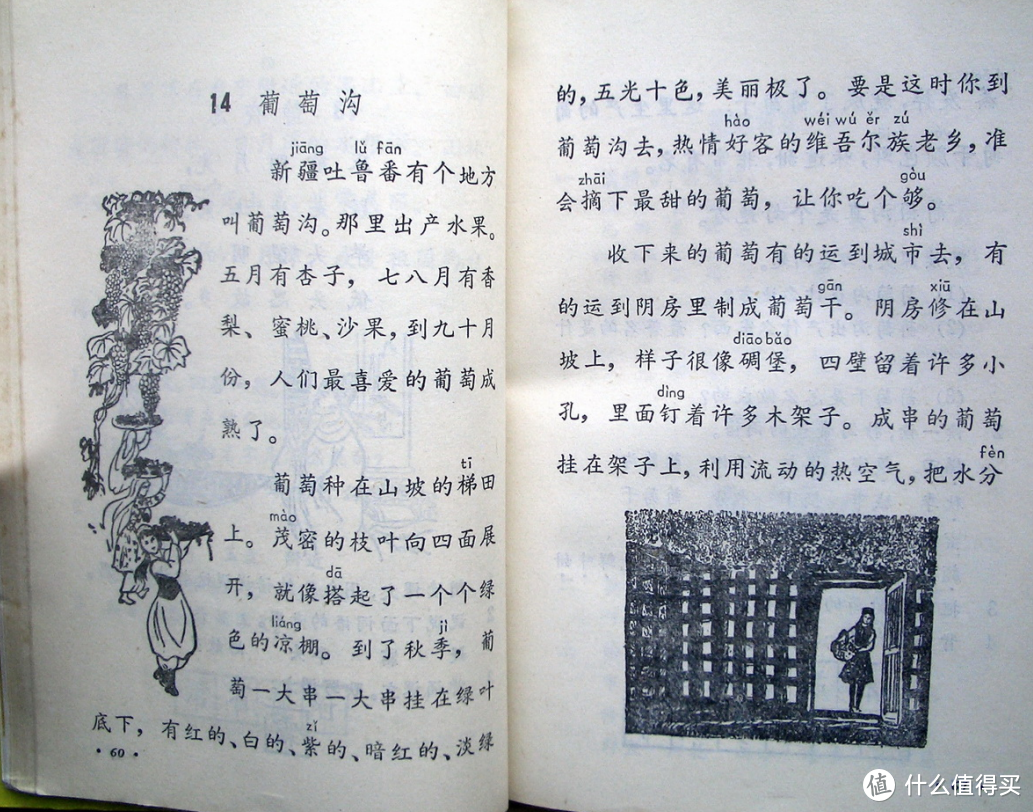 14 葡萄沟
jiāng lǔ fān
新疆吐鲁番有个地方
叫葡萄沟。那里出产水果。
五月有杏子，七八月有香
梨、蜜桃、沙果，到九十月
份，人们最喜爱的葡萄成
熟了。
tī
葡萄种在山坡的梯田
mào
上。茂密的枝叶向四面展
dā
开，就像搭起了一个个绿
liáng jì
色的凉棚。到了秋季，葡
萄一大串一大串挂在绿叶
zǐ
底下，有红的、白的、紫的、暗红的、淡绿
·60·
的，五光十色，美丽极了。要是这时你到
hào wéi wú ěr zú
葡萄沟去，热情好客的维吾尔族老乡，准
zhāi gòu
会摘下最甜的葡萄，让你吃个够。
shì
收下来的葡萄有的运到城市去，有
gān xiū
的运到阴房里制成葡萄干。阴房修在山
diāo bǎo
坡上，样子很像碉堡，四壁留着许多小
dìng
孔，里面钉着许多木架子。成串的葡萄
fèn
挂在架子上，利用流动的热空气，把水分
值 什么值得买